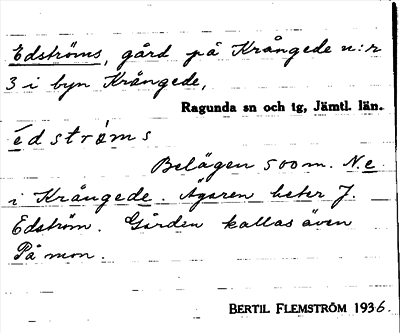 Edströms, gård på Krångede n:r
3 i byn Krångede,
Ragunda sn och tg, Jämtl. län.
édstrøms
Belägen 500 m. N.e.
i Krångede. Ägaren heter J.
Edström. Gården kallas även
På mon.
BERTIL FLEMSTRÖM 1936.